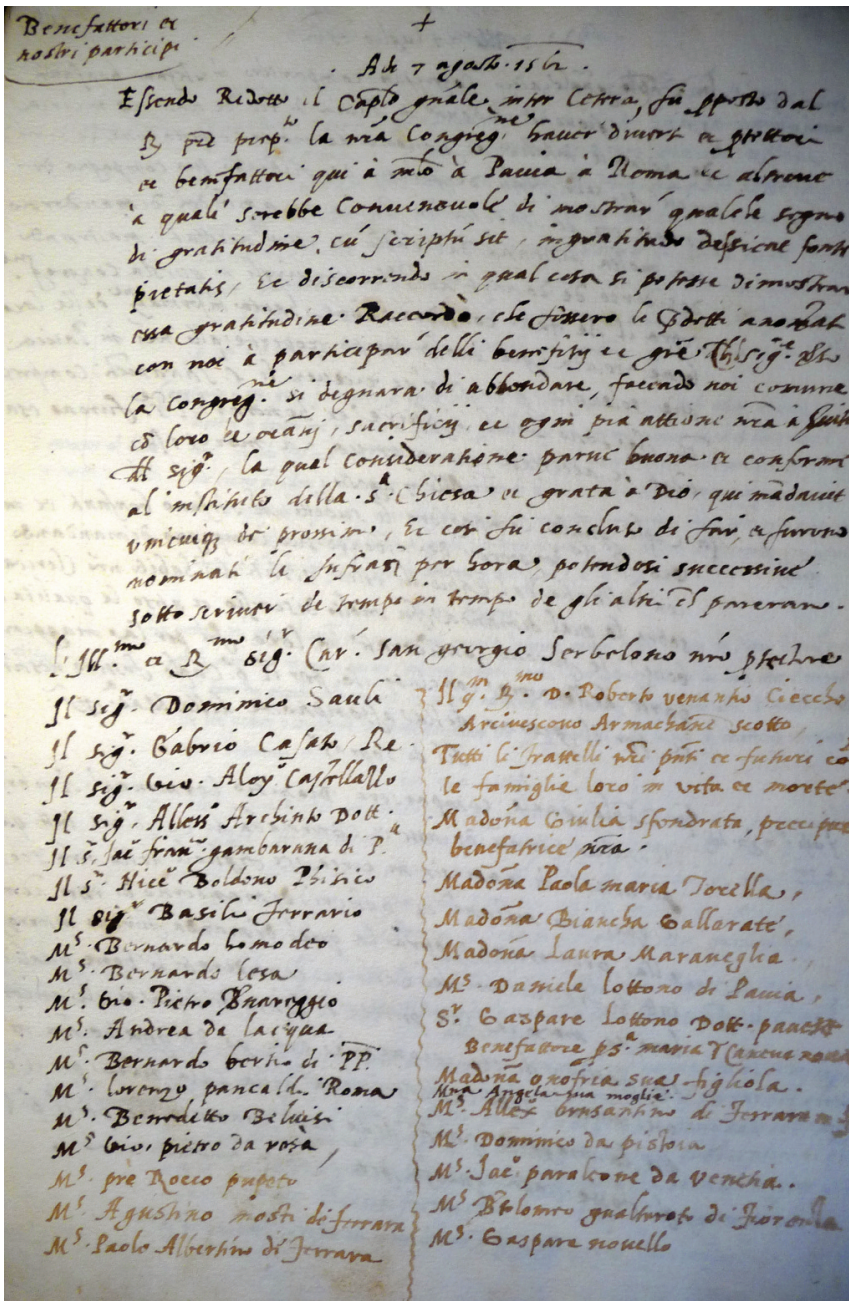 Benefattori et
nostri participi
+
Adi 7 agosto 1562.
Essendo Ridotto il Caplo gñale inter Cetera, fu pposto dal
R pre prep.to la nrã Congreg.ne haver diversi et ptettori
et benefattori qui à mlo à Pavia à Roma et altrove
à quali serebbe Convenevole di mostrar qualche segno
di gratitudine, cũ scriptũ sit, ingratitudo desicat fonte
pietatis, Et discorrendo in qual cosa si potesse dimostrar
essa gratitudine Raccordò, che fussero le pdetti
con noi à participar delli beneficij et grẽ sig.e
la Congreg.ne si degnara di abbondare, facendo noi comune
cõ loro le orãnj, sacrificij, et ogni pia attione nrã à
sig.r, la qual Consideratione parve buona et conforme
al instituto della S.a Chiesa et grata à Dio, qui mãdavit
unicuiq de proximo, Et cosi fu concluso di far, et furono
nominati li Infrasti per hora, potendosi successive
sotto scriver de tempo in tempo de gli altri parerano.
L'Ill.mo et R.mo sig.r Car. San Georgio Serbelono nro ptettore
Il sig.r Dominico Sauli
Il sig.r Gabrio Casato, Re
Il sig.r Gio. Aloy Castellazo
Il sig.r Aless Archinto Dott.
Il s.r Jac fran gambarana di P.a
Il s.r Nic Boldono Phisico
Il sig.r Basilio Ferrario
M.s Bernardo homodeo
M.s Bernardo lesa
M.s Gio. Pietro
M.s Andrea da lacqua
M.s Bernardo bertio di PP.
M.s lorenzo pancaldi Roma
M.s Benedetto Belvisi
M.s Gio. pietro da rosa,
M.s pre Rocco pupeto
M.s Agustino mosti di ferrara
M.s Paolo Albertino di Ferrara
Il q.m R.mo D. Roberto venantio
Arcivescovo Armachane scotto,
Tutti li frattelli nrĩ pñti et futuri cõ
le famiglie loro in vita et morte
Madoña Giulia sfondrata,
benefatrice nrã.
Madoña Paola maria Torella,
Madoña Biancha Gallarate,
Madoña Laura Maraveglia.
M.s Daniele lottono di Pavia,
S.r Gaspare lottono Dott. pavese
Benefattore p s.a maria Caneva nova
Madoña onofria sua figliola.
Mrã Angela sua moglie.
M.s Allex brusantino di Ferrara
M.s Dominico da pistoia
M.s Jac paralcone da venetia.
M.s Btolomeo gualturoto di
M.s Gaspare novello